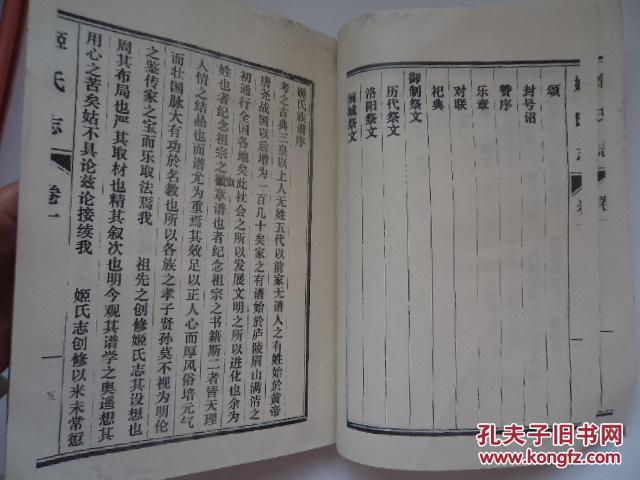 颂
封号诏
赞序
乐章
对联
祀典
御制祭文
历代祭文
洛阳祭文
城祭文
姬氏志
卷
姬氏族谱序
考之古典三皇以上人无姓五代以前家无谱人之有姓始於黄帝
唐尧战国以后增为一百几十矣家之有谱始於庐陵眉山满清之
初通行全国各地矣此社会之所以发展文明之所以进化也余为
姓也者纪念祖宗之徽章谱也者纪念祖宗之书籍斯二者皆天理
人情之结晶也而谱尤为重焉其效足以正人心而厚风俗培元气
而壮国脉大有功於名教也所以各族之孝子贤孙莫不视为明伦
之鉴传家之宝而乐取法焉我 祖先之创修姬氏志其设想也
周其布局也严其取材也精其叙次也明今观其谱学之奥遥想其
用心之苦矣姑不具论兹论接续我 姬氏志创修以来未常愆
姬氏志
卷一
五
孔夫子旧书网
KONGFZ.COM